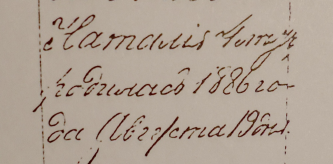 Наталія
родилась 1886 го-
да Августа 19 дня